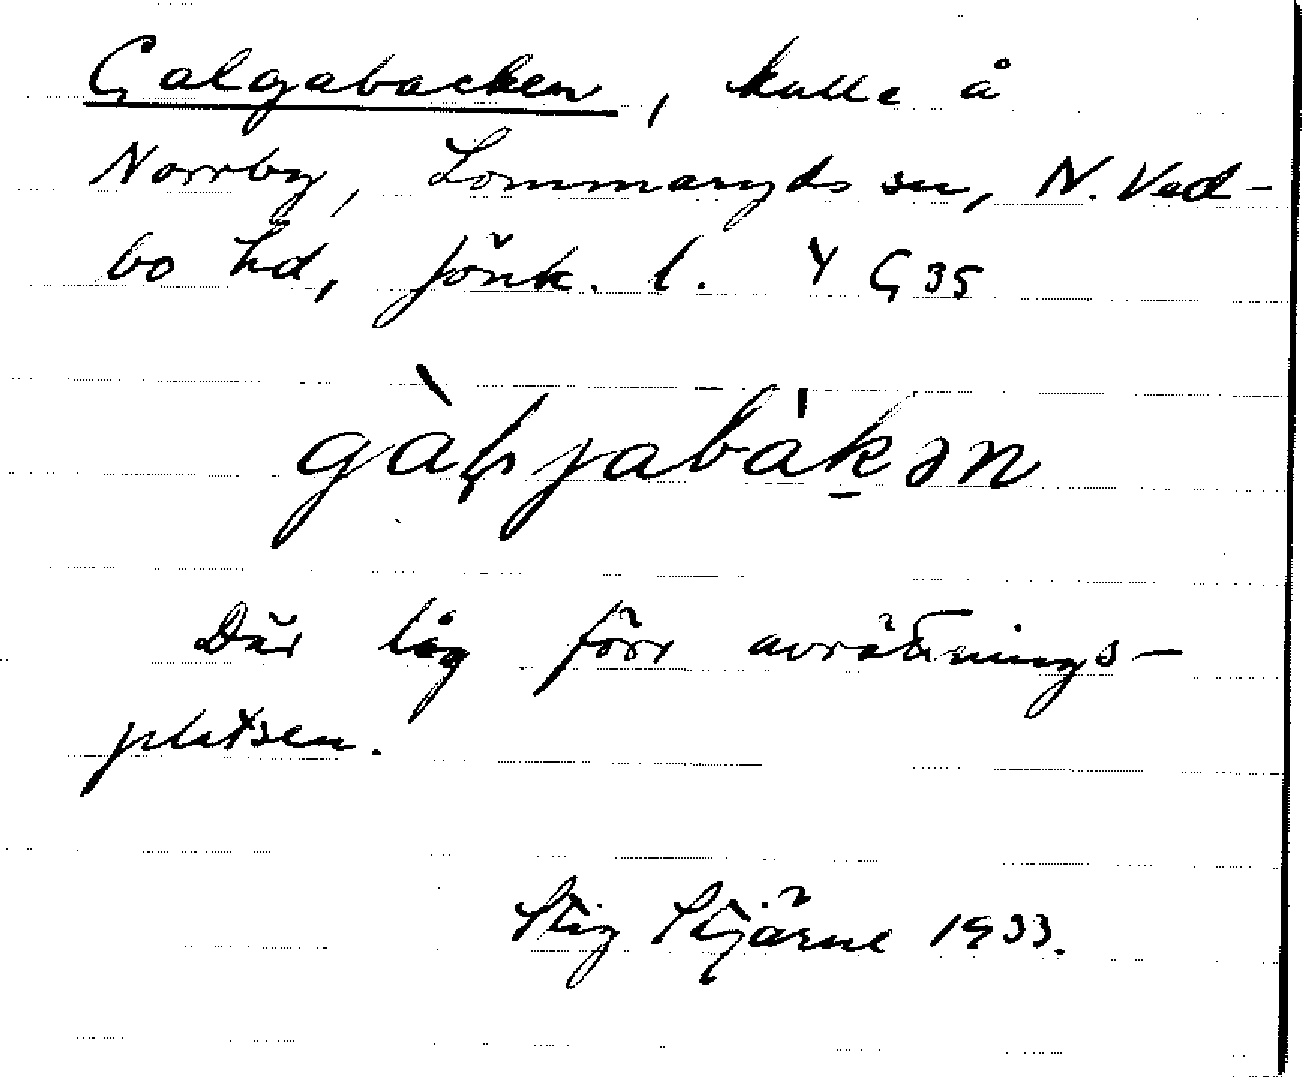 Galgabacken, kulle å
Norrby, Lommaryds sn, N. Ved-
bo hd, Jönk. l. Y G 35
Där låg förr avrättnings-
platsen.
Stig Stjärne 1933.